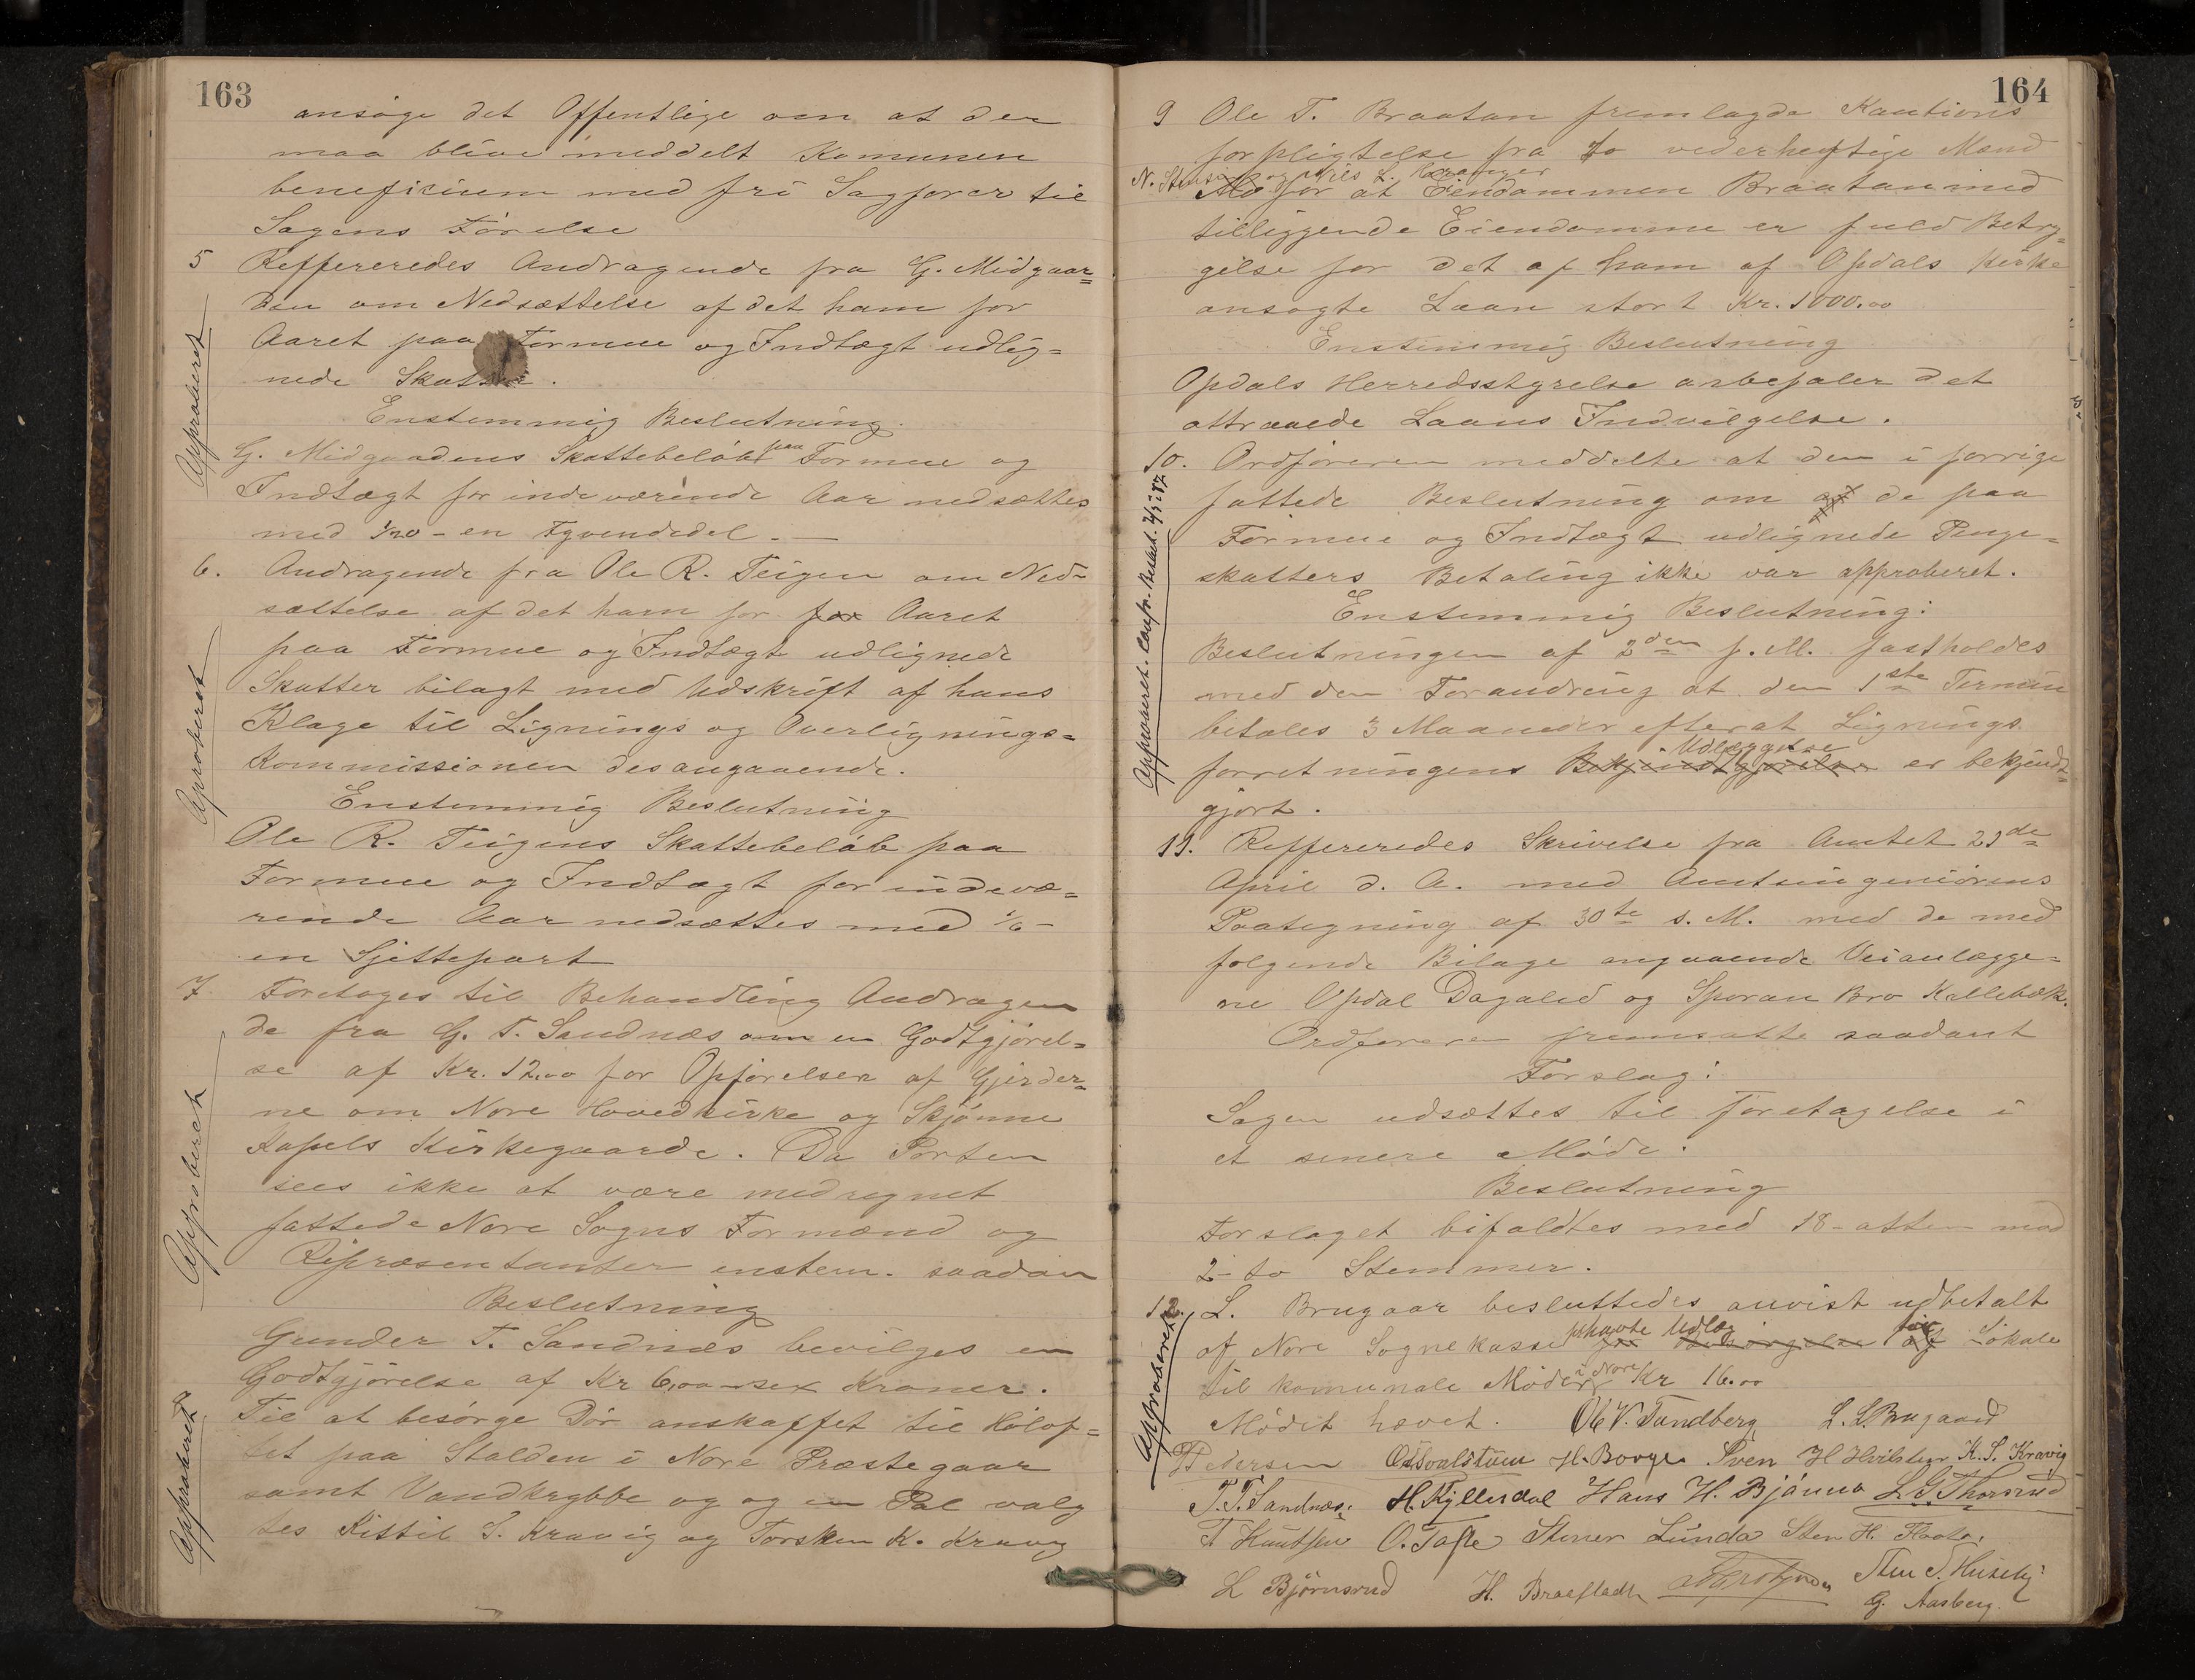 163
ansøge det Offentlige om at der
maa blive meddelt Komunen
beneficium med fri Sagfører til
Sagens Førelse
5 Reffereredes Andragende fra G. Midgaar=
den om Nedsættelse af det ham for
Aaret paa Formue og Indtægt udlig=
nede Skatter.
Enstemmig Beslutning.
Approberet
G. Midgaadens Skattebeløb paa Formue og
Indtægt for indeværende Aar nedsættes
med 1/20 - en Tyvendedel. —
6. Andragende fra Ole R. Teigen om Ned=
sættelse af det ham for for Aaret
paa Formue og Indtægt udlignede
Skatter bilagt med Udskrift af hans
Klage til Lignings og Overlignings=
kommissionen desangaaende.
Enstemmig Beslutning
Aproberet
Ole R. Teigens Skattebeløb paa
Formue og Indtægt for indevæ=
rende Aar nedsættes med 1/6 -
en Sjettepart
7 Foretoges til Behandling Andragen
de fra G. T. Sandnæs om en Godtgjørel=
se af Kr. 12.00 for Opførelsen af Gjerder=
ne om Nore Hovedkirke og Skjønne
Kapels Kirkegaarde. Da Porten
sees ikke at være medregnet
fattede Nore Sogns Formænd og
Repræsentanter enstem. saadan
Beslutning
Approberet
Gunder T. Sandnæs bevilges en
Godtgjørelse af Kr 6,00 - sex Kroner.
Til at besørge Dør anskaffet til Hølof=
tet paa Stalden i Nore Præstegaar
samt Vandkrybbe og og en Pal valg
tes Kittil S. Kravig og Torsten K. Kravig
Approberet
164
9 Ole T. Braatan fremlagde Kautions
forpligtelse fra to vederheftige Mænd
N. Stensen og Nils L. Haranger
for at Eiendommen Braatan med
tilliggende Eiendomme er fuld Betry=
gelse for det af ham af Opdals Kirke
ansøgte Laan stort Kr. 1000.00
Enstemmig Beslutning
Opdals Herredsstyrelse anbefaler det
attraaede Laans Indvilgelse.
10. Ordføreren meddelte at den i forrige
fattede Beslutning om af de paa
Formue og Indtægt udlignede Penge=
skatters Betaling ikke var approberet.
Enstemmig Beslutning:
Approberet. Confr. Beslut. 2/5 87
Beslutningen af 2den f. M. fastholdes
med den Forandring at den 1ste Termin
betales 3 Maaneder efterat Lignings
forretningens Bekjendtgjørelse Udlæggelse er bekjendt=
gjort.
11. Reffereredes Skrivelse fra Amtet 29de
April d. A. med Amtsingeniørens
Paategning af 30te s. M. med de med
følgende Bilage angaaende Veianlægge=
ne Opdal Dagalid og Sporan Bro Kallebæk.
Ordføreren fremsatte saadant
Forslag:
Sagen udsættes til Foretagelse i
et senere Møde.
Beslutning
Forslaget bifaldtes med 18 - atten mod
2 - to Stemmer.
12. L. Brugaar besluttedes anvist udbetalt
af Nore Sognekasse for Besørgelse af havte Udlæg for Lokale
til komunale Møder i Nore Kr 16.00
Approberet
Mødet hævet. Ole V. Tandberg L. L. Brugaard
T Pedersen H. Borge Sven H Hvilstur K. S. Kravig
T. T. Sandnæs. H. Kjllesdal Hans H. Bjønno L G Thorsrud
T Knutsen O. Tofte Stener Lunda Sten H. Flaata.
L Bjørnsrud H. Braafladt Sten T. Huseby
G. Aasberg.